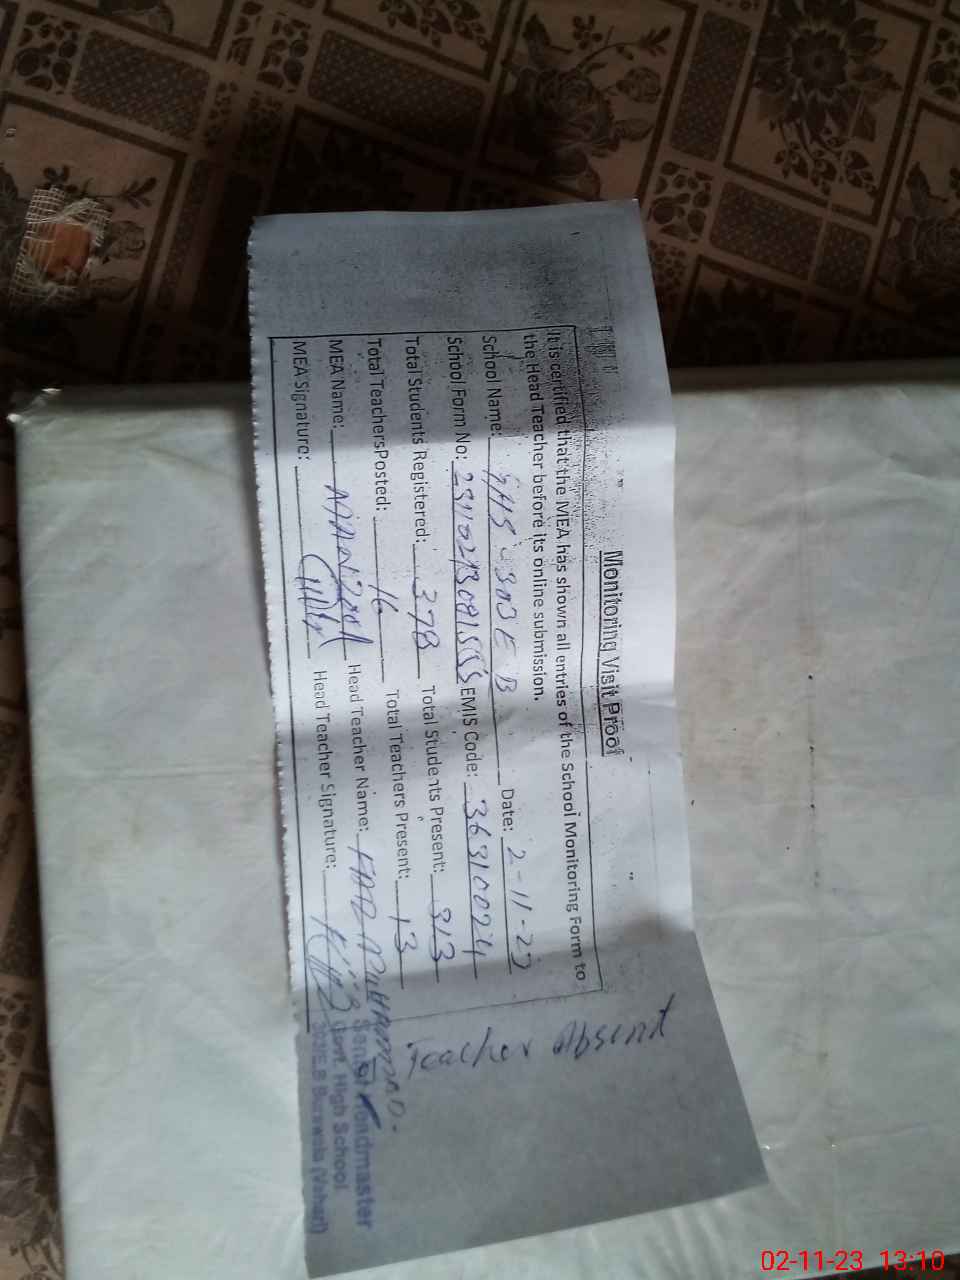 Monitoring Visit Proof
It is certified that the MEA has shown all entries of the School Monitoring Form to
the Head Teacher before its online submission.
School Name: GHS 303 E B Date: 2-11-23
School Form No: EMIS Code: 36310024
Total Students Registered: 378 Total Students Present: 313
Total Teachers Posted: 16 Total Teachers Present: 13
MEA Name: Head Teacher Name:
MEA Signature: Head Teacher Signature:
Teacher Absent
Senior Headmaster
Govt. High School
303/E.B Burewala (Vehari)
02-11-23 13:10